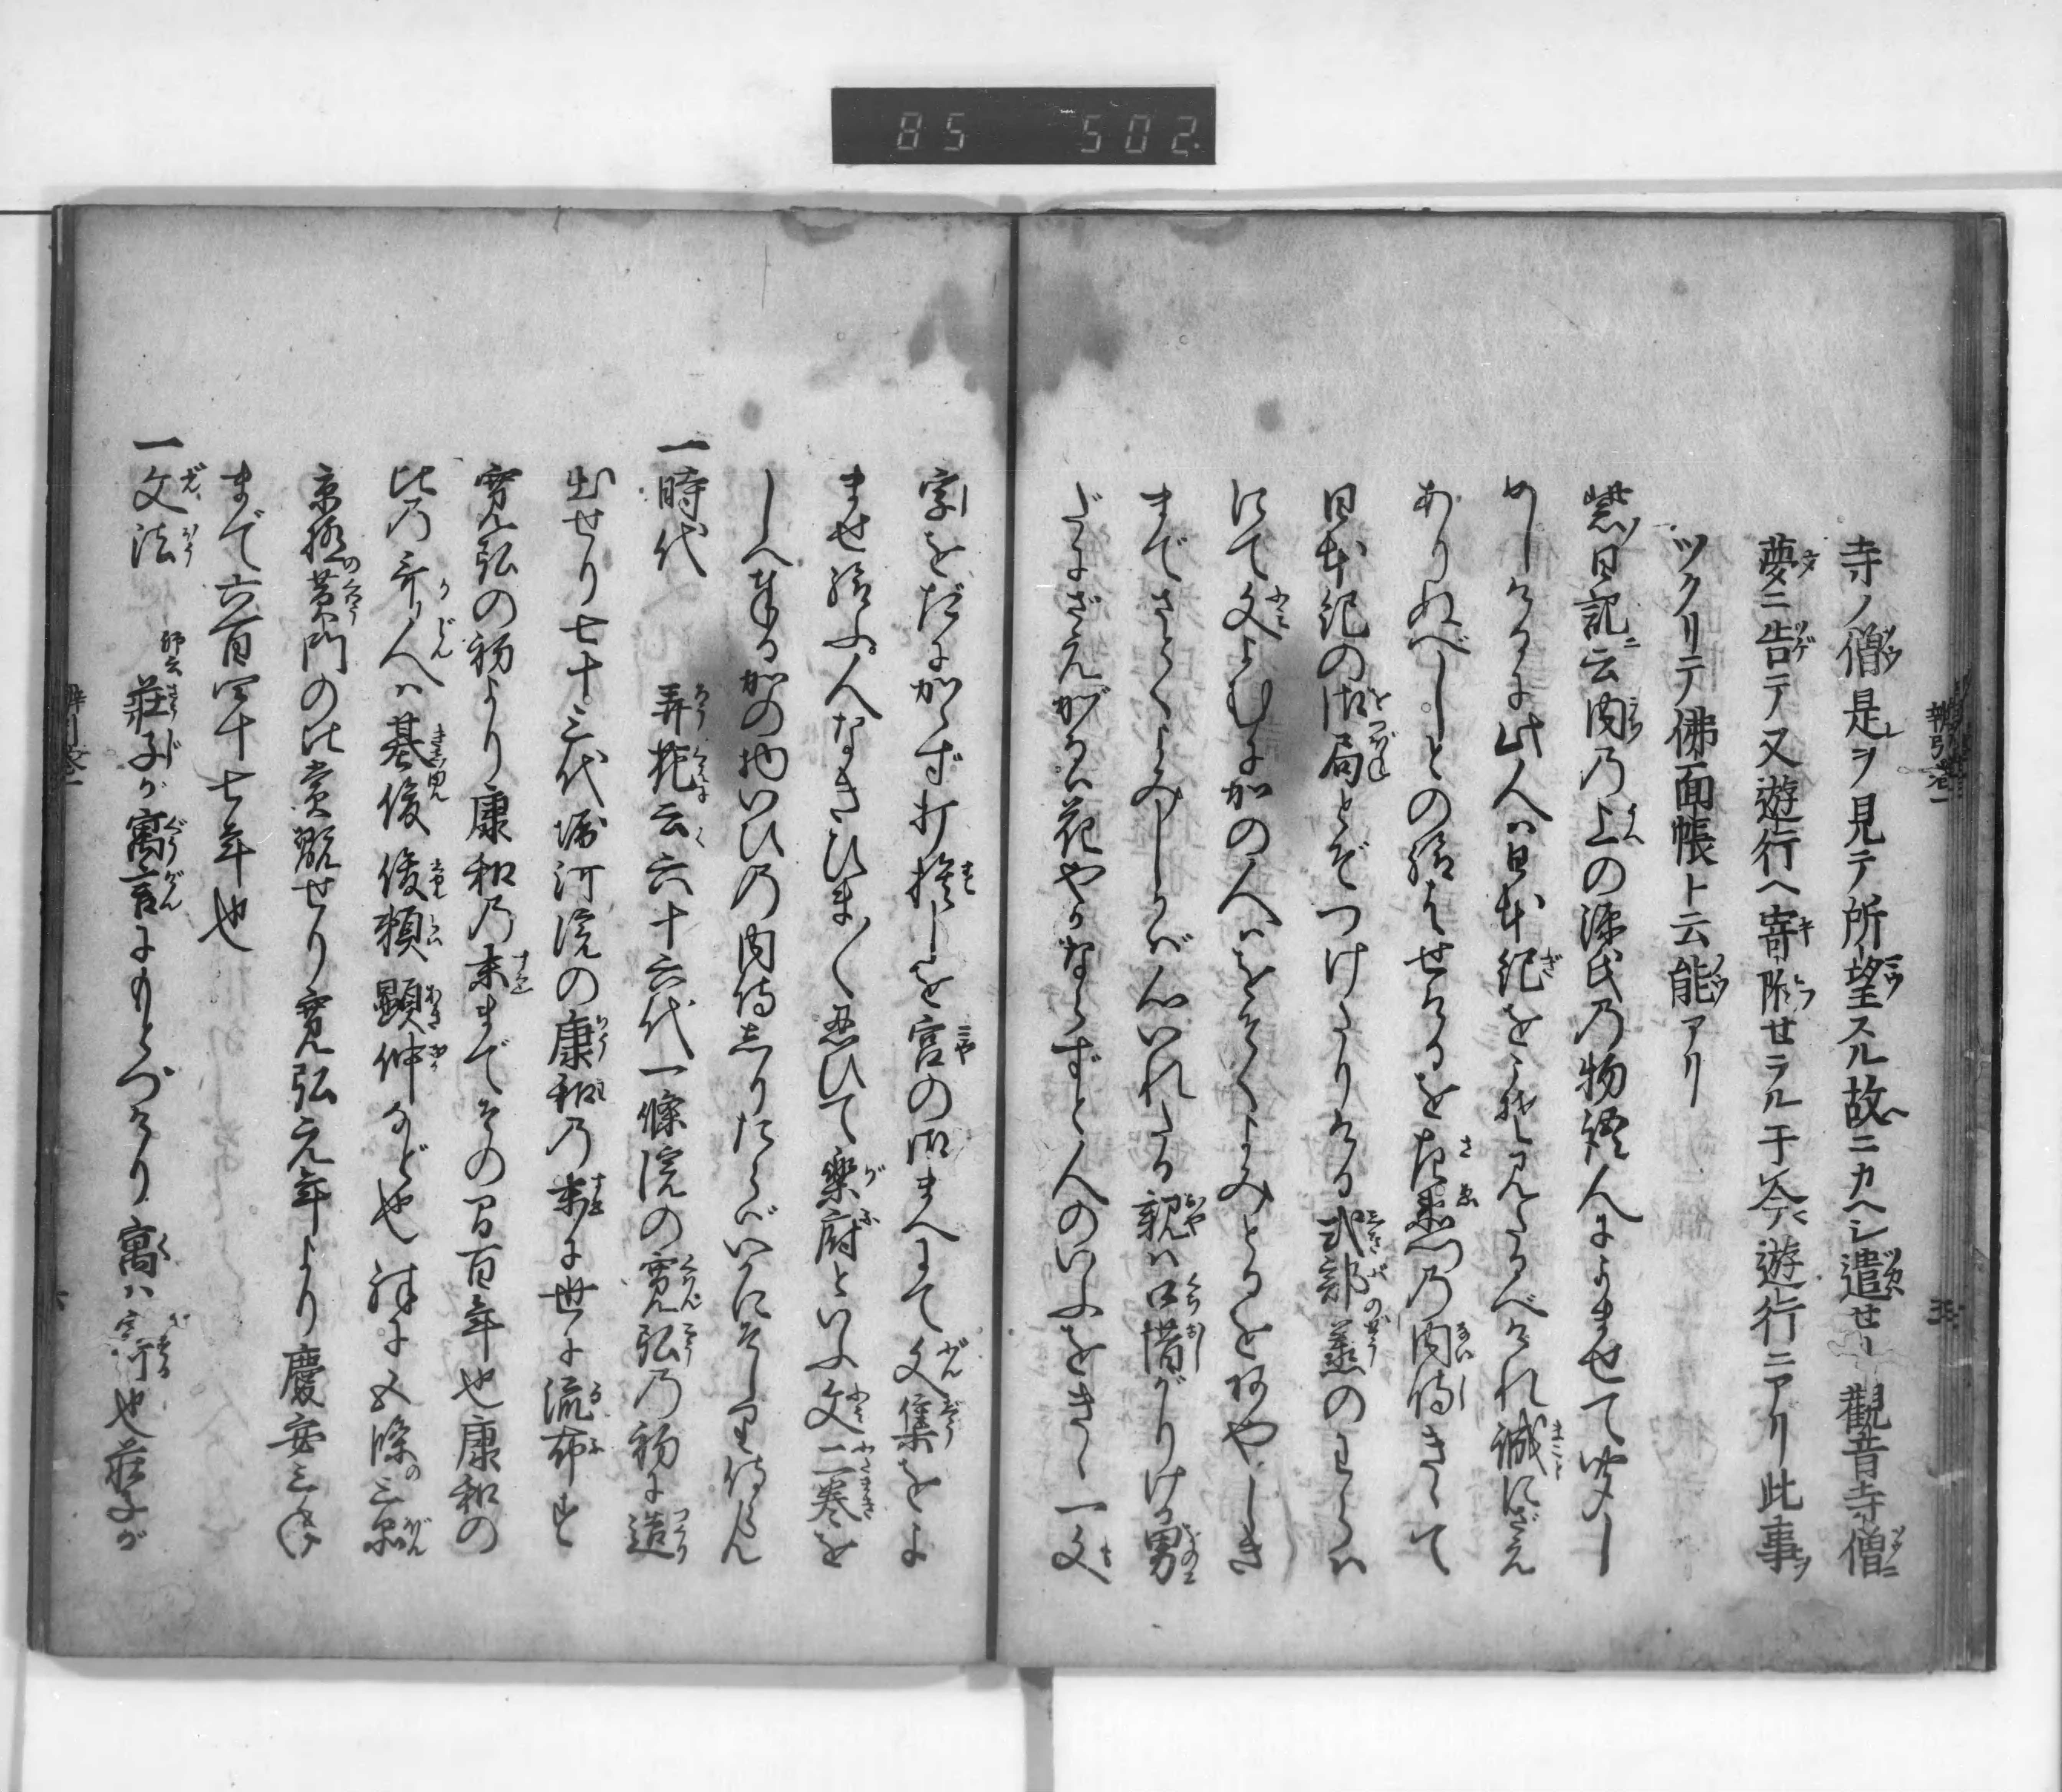 85 502
寺ノ僧是ヲ見テ所望スル故ニカヘシ遣セリ観音寺僧
夢ニ告テ又遊行ヘ寄附セラル于今遊行ニアリ此事ヲ
ツクリテ佛面帳ト云能アリ
紫日記云内乃上の源氏乃物語人によませて聞し
めしけるに此人ハ日本紀をこそ見たるべけれ誠にざえ
ありぬべしとの給はせけるを左衛門乃内侍きゝて
日本紀の御局とぞつけたりける式部丞のわらハ
にて文よむに加の人ハをそくよみとるをあやしき
までさとくよみしかバ心いれたる親ハ口惜がりける男
だにざえがるハ花やかならずと人のいふをきゝ一文
字をだに加ゝず打捨しを宮の御まへにて文集をよ
ませ給ふ人なきひま〳〵忍ひて楽府といふ文二巻を
しへ奉る加の物いひ乃内侍志りたらバいかにそしり侍らん
一時代 弄花云六十六代一條院の寛弘乃初に造
出せり七十三代堀河院の康和乃末に世に流布す
寛弘の初より康和乃末までその間百年也康和の
比乃哥人ハ基俊俊頼顕仲など也禅に五條の三品
京極黄門の比賞翫せり寛弘元年より慶安三年
まで六百四十七年也
一文法 師云荘子が寓言にもとづけり寓ハ寄也荘子が